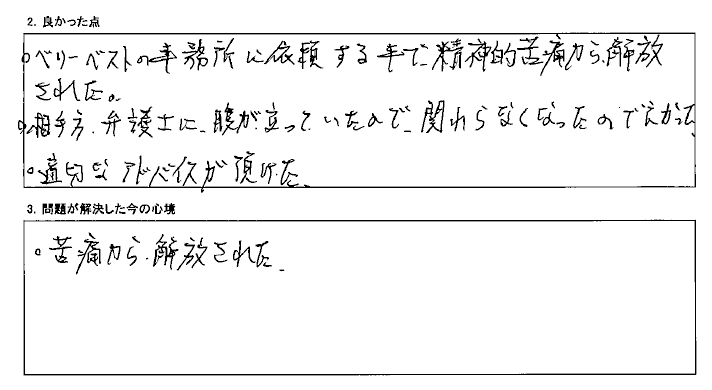 2. 良かった点
○ベリーベストの事務所に依頼する事で、精神的苦痛から、解放
された。
○相手方、弁護士に、腹が立っていたので、関わらなくなったのでよかった
○適切なアドバイスが頂けた。
3. 問題が解決した今の心境
○苦痛から、解放された。